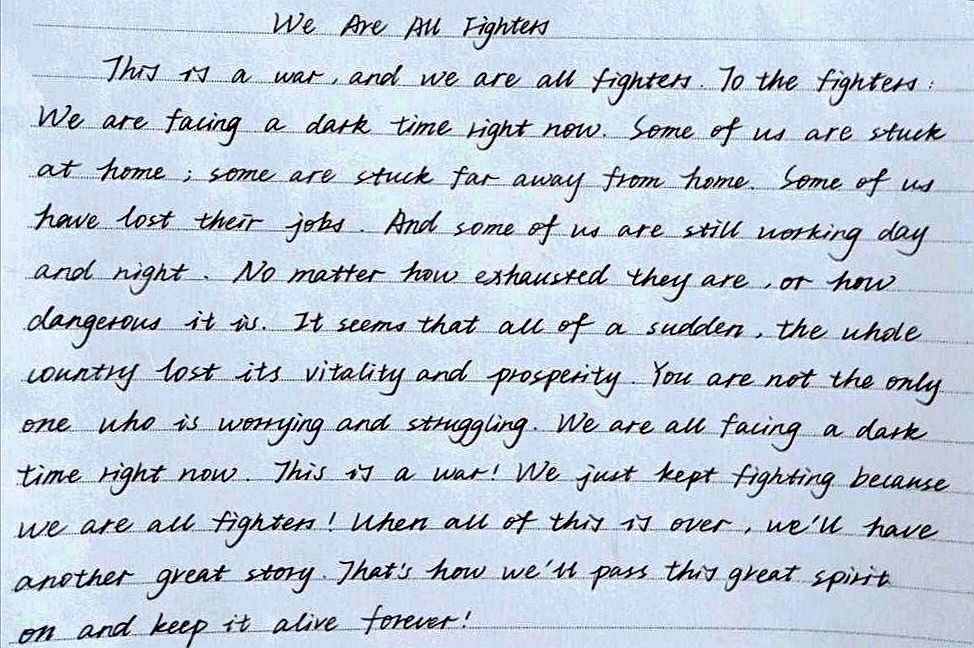 We Are All Fighters
This is a war, and we are all fighters. To the fighters:
We are facing a dark time right now. Some of us are stuck
at home; some are stuck far away from home. Some of us
have lost their jobs. And some of us are still working day
and night. No matter how exhausted they are, or how
dangerous it is. It seems that all of a sudden, the whole
country lost its vitality and prosperity. You are not the only
one who is worrying and struggling. We are all facing a dark
time right now. This is a war! We just kept fighting because
we are all fighters! When all of this is over, we'll have
another great story. That's how we'll pass this great spirit
on and keep it alive forever!